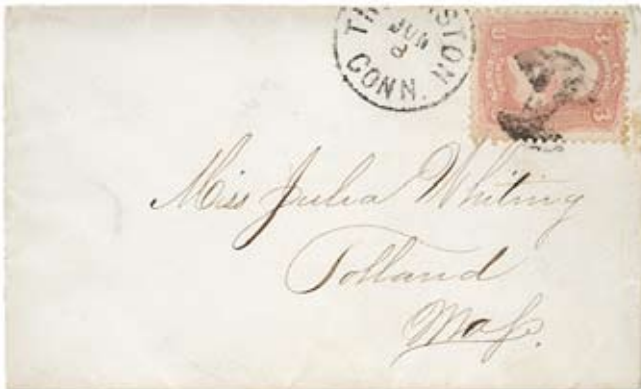 TH STON
JUN
CONN.
U 3
3
Miss Julia Whiting
Tolland
Mass.